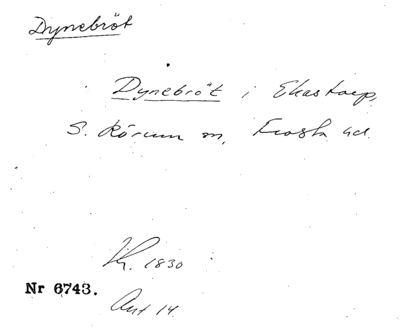 Dynebröt
Dynebröt i Ekastorp,
S. Rörum sn, Frosta hd.
Kr. 1830
Nr 6743.
Ant 14.